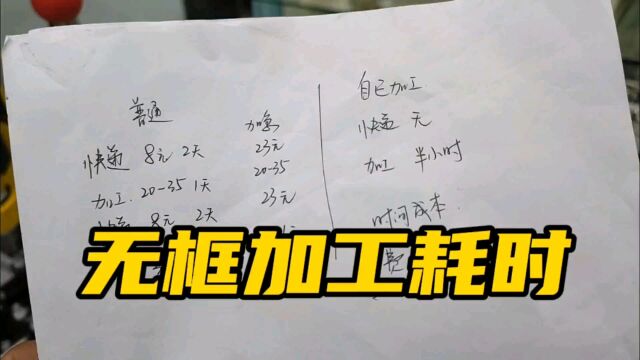 普通 加急
快递 8元 2天 23元
加工. 20-35 1天 20-35
8元 2天 23元
自己加工
快递 无
加工 半小时
时间成本:
费
无框加工耗时